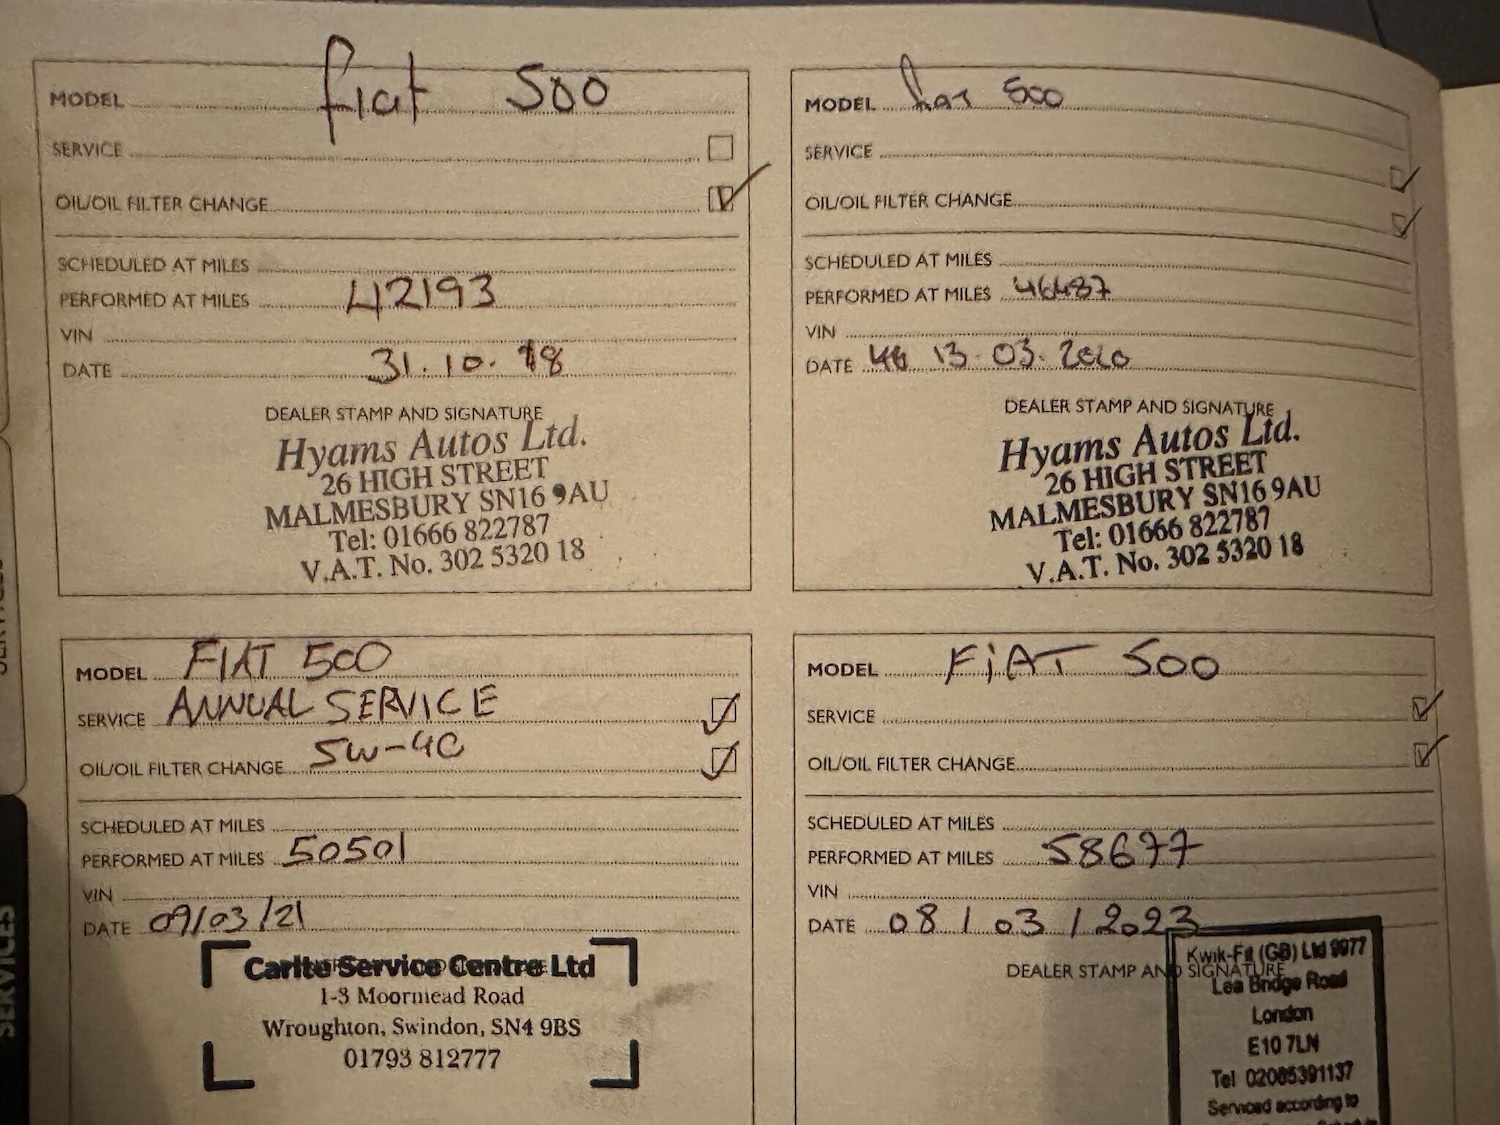 MODEL fiat 500
SERVICE
OIL/OIL FILTER CHANGE
SCHEDULED AT MILES
PERFORMED AT MILES 42193
VIN
DATE 31.10.18
DEALER STAMP AND SIGNATURE
Hyams Autos Ltd.
26 HIGH STREET
MALMESBURY SN16 9AU
Tel: 01666 822787
V.A.T. No. 302 5320 18
MODEL fiat 500
SERVICE
OIL/OIL FILTER CHANGE
SCHEDULED AT MILES
PERFORMED AT MILES 46487
VIN
DATE 13.03.2020
DEALER STAMP AND SIGNATURE
Hyams Autos Ltd.
26 HIGH STREET
MALMESBURY SN16 9AU
Tel: 01666 822787
V.A.T. No. 302 5320 18
MODEL FIAT 500
SERVICE ANNUAL SERVICE
OIL/OIL FILTER CHANGE 5W-40
SCHEDULED AT MILES
PERFORMED AT MILES 50501
VIN
DATE 09/03/21
Carlte Service Centre Ltd
1-3 Moormead Road
Wroughton, Swindon, SN4 9BS
01793 812777
MODEL FiAT 500
SERVICE
OIL/OIL FILTER CHANGE
SCHEDULED AT MILES
PERFORMED AT MILES 58677
VIN
DATE 08/03/2023
DEALER STAMP AND SIGNATURE
Kwik-Fit (GB) Ltd 9977
Lea Bridge Road
London
E10 7LN
Tel 02085391137
Serviced according to
SERVICES